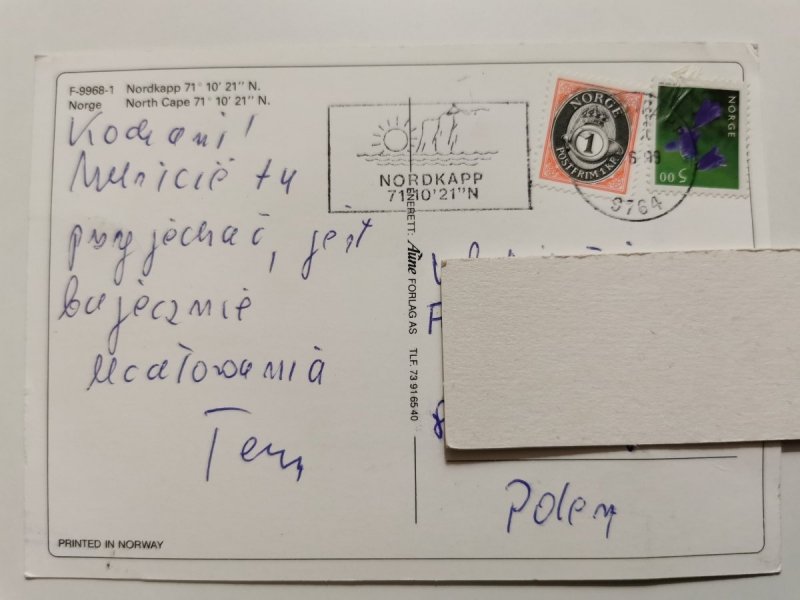 F-9968-1 Nordkapp 71° 10' 21" N.
Norge North Cape 71° 10' 21" N.
Kochani!
Musicie tu
przyjechać, jest
bajecznie
Ucałowania
NORDKAPP
71°10'21"N
NORGE
1
POSTFRIM. 1 KR.
9764
NORGE
5 00
ENERETT: Aune FORLAG AS TLF. 73 91 65 40
Polen
PRINTED IN NORWAY